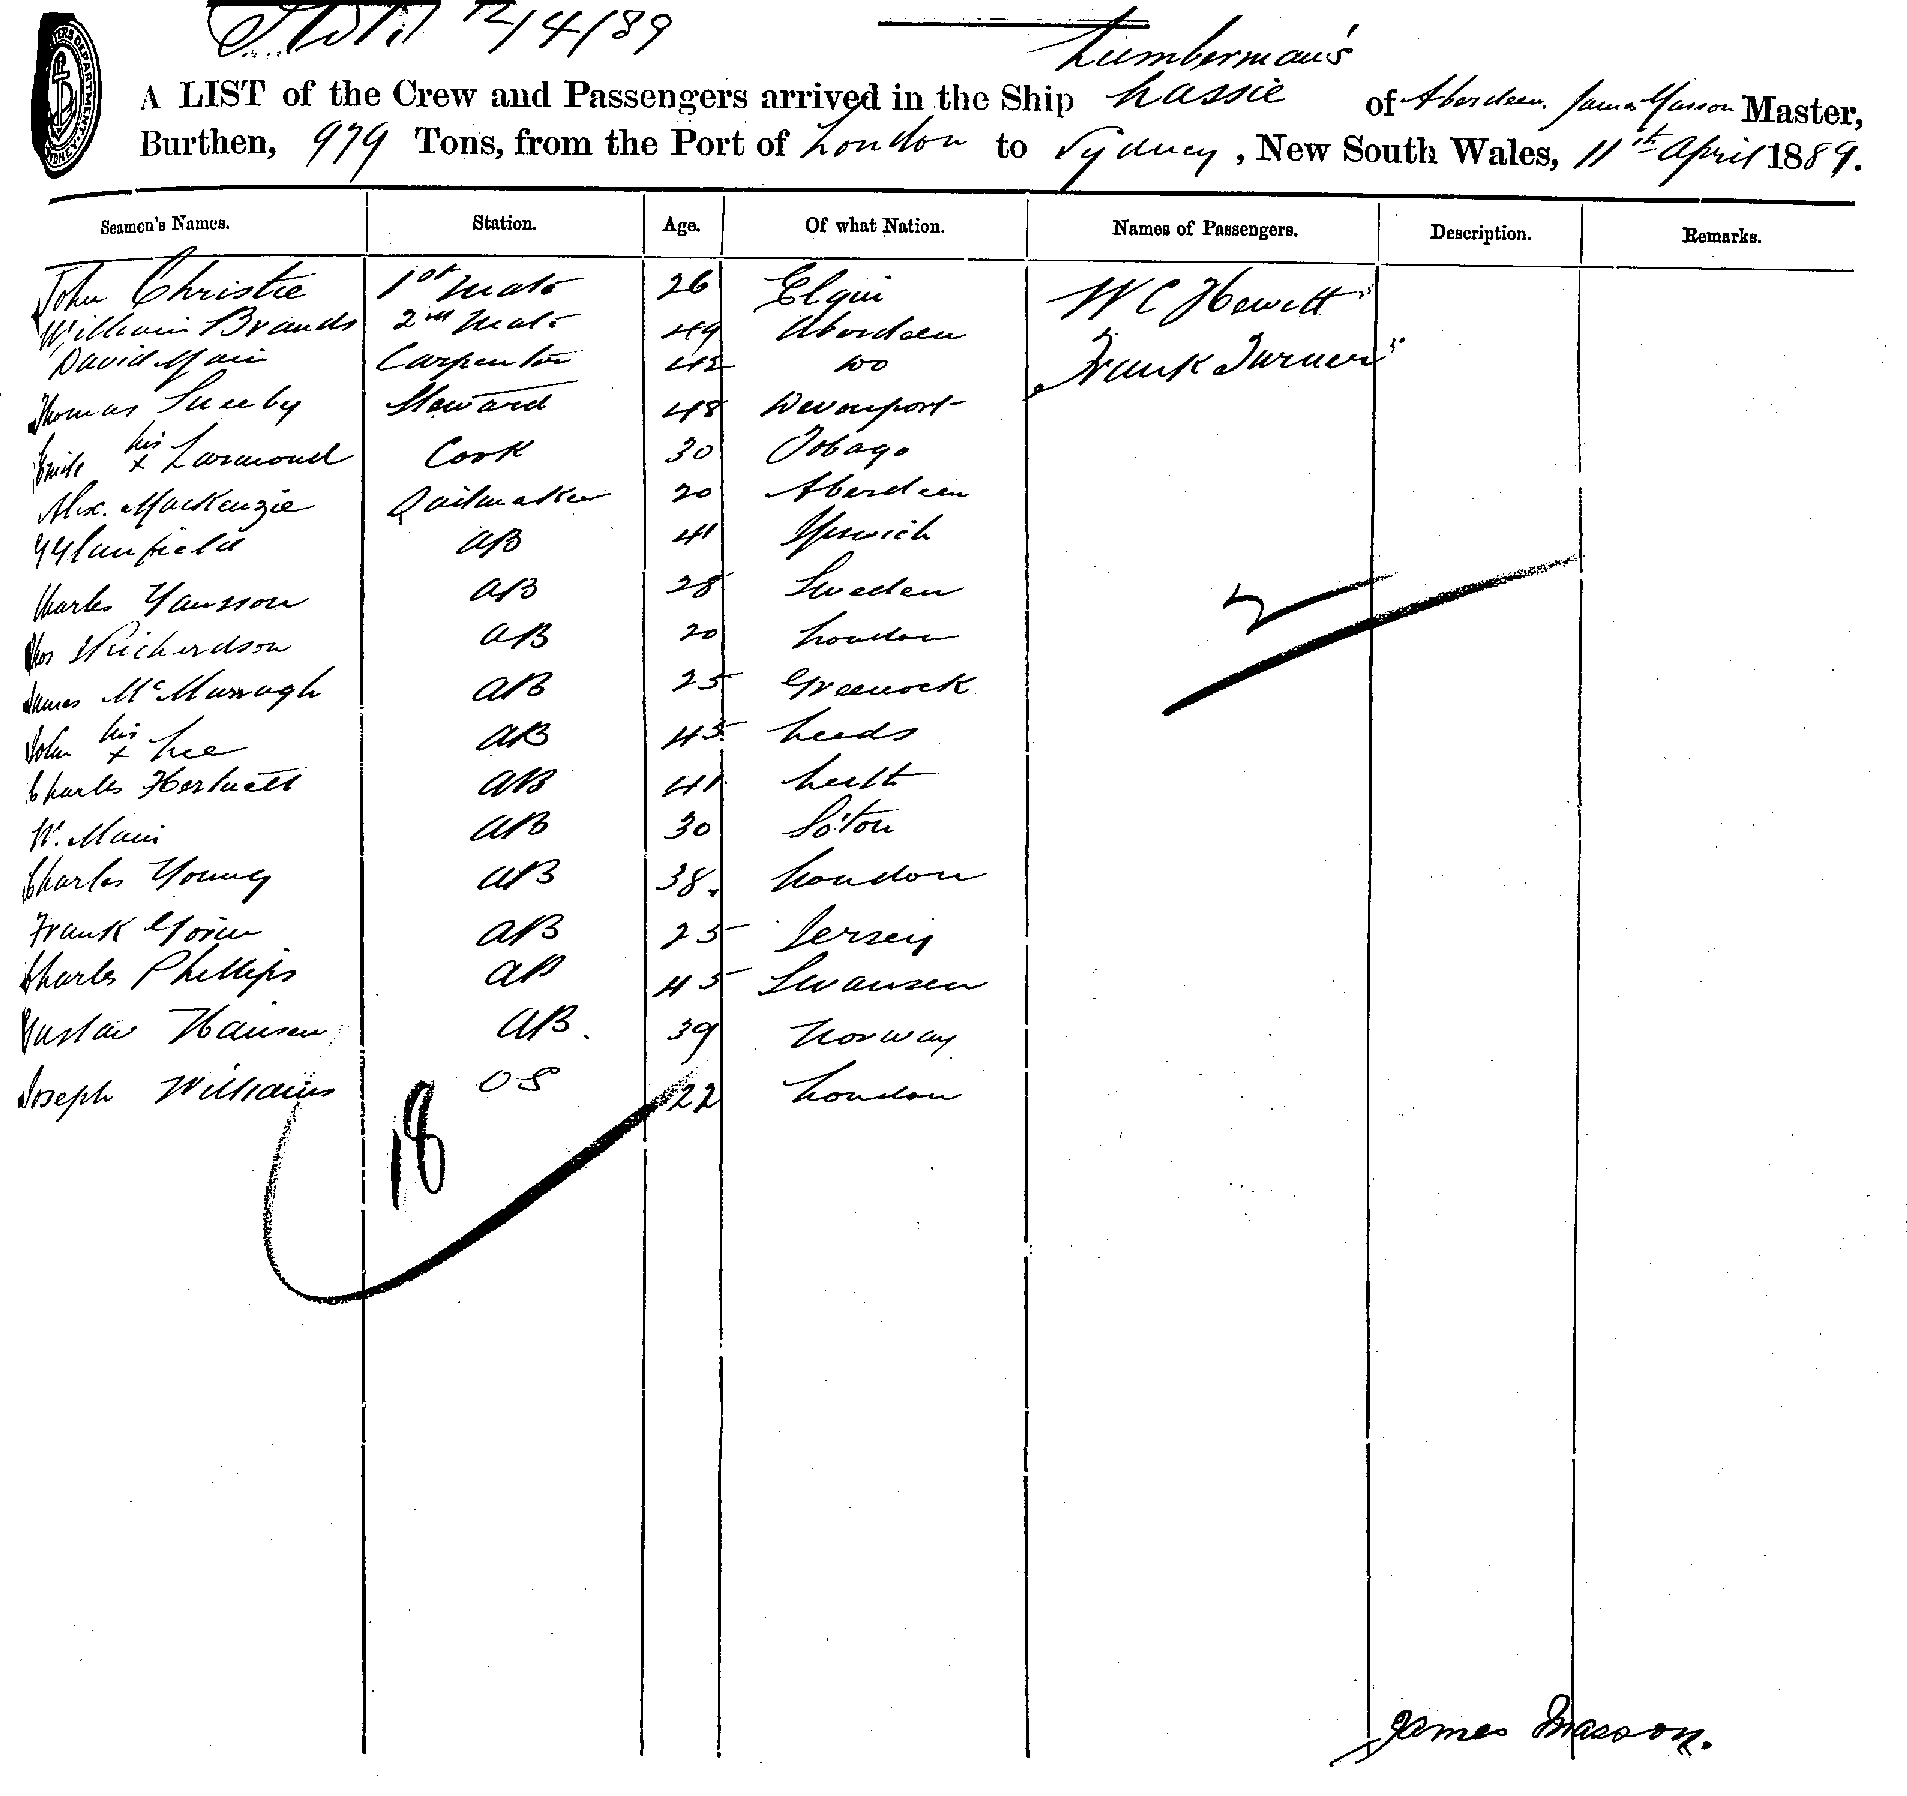 12/4/89
Lumberman's
A LIST of the Crew and Passengers arrived in the Ship Lassie of Aberdeen, James Masson Master,
Burthen, 979 Tons, from the Port of London to Sydney, New South Wales, 11th April 1889.
Seamen's Names. Station. Age. Of what Nation. Names of Passengers. Description. Remarks.
John Christie 1st Mate 26 Elgin W C Hewett
William Brands 2nd Mate 49 Aberdeen
David Main Carpenter 42 Do Frank Turner
Thomas Steward 48 Devonport
his x Cook 30 Tobago
Alex. Mackenzie Sailmaker 20 Aberdeen
AB 41 Ipswich
Charles Yansson AB 28 Sweden
2
Richardson AB 20 London
James McMurragh AB 25 Greenock
John his x Lee AB 45 Leeds
Charles AB 41 Leith
W. Main AB 30 So'ton
Charles Young AB 38. London
Frank AB 25 Jersey
Charles Phillips AB 45 Swansea
Gustav Hansen AB. 39 Norway
Joseph Williams OS 22 London
18
James Masson.